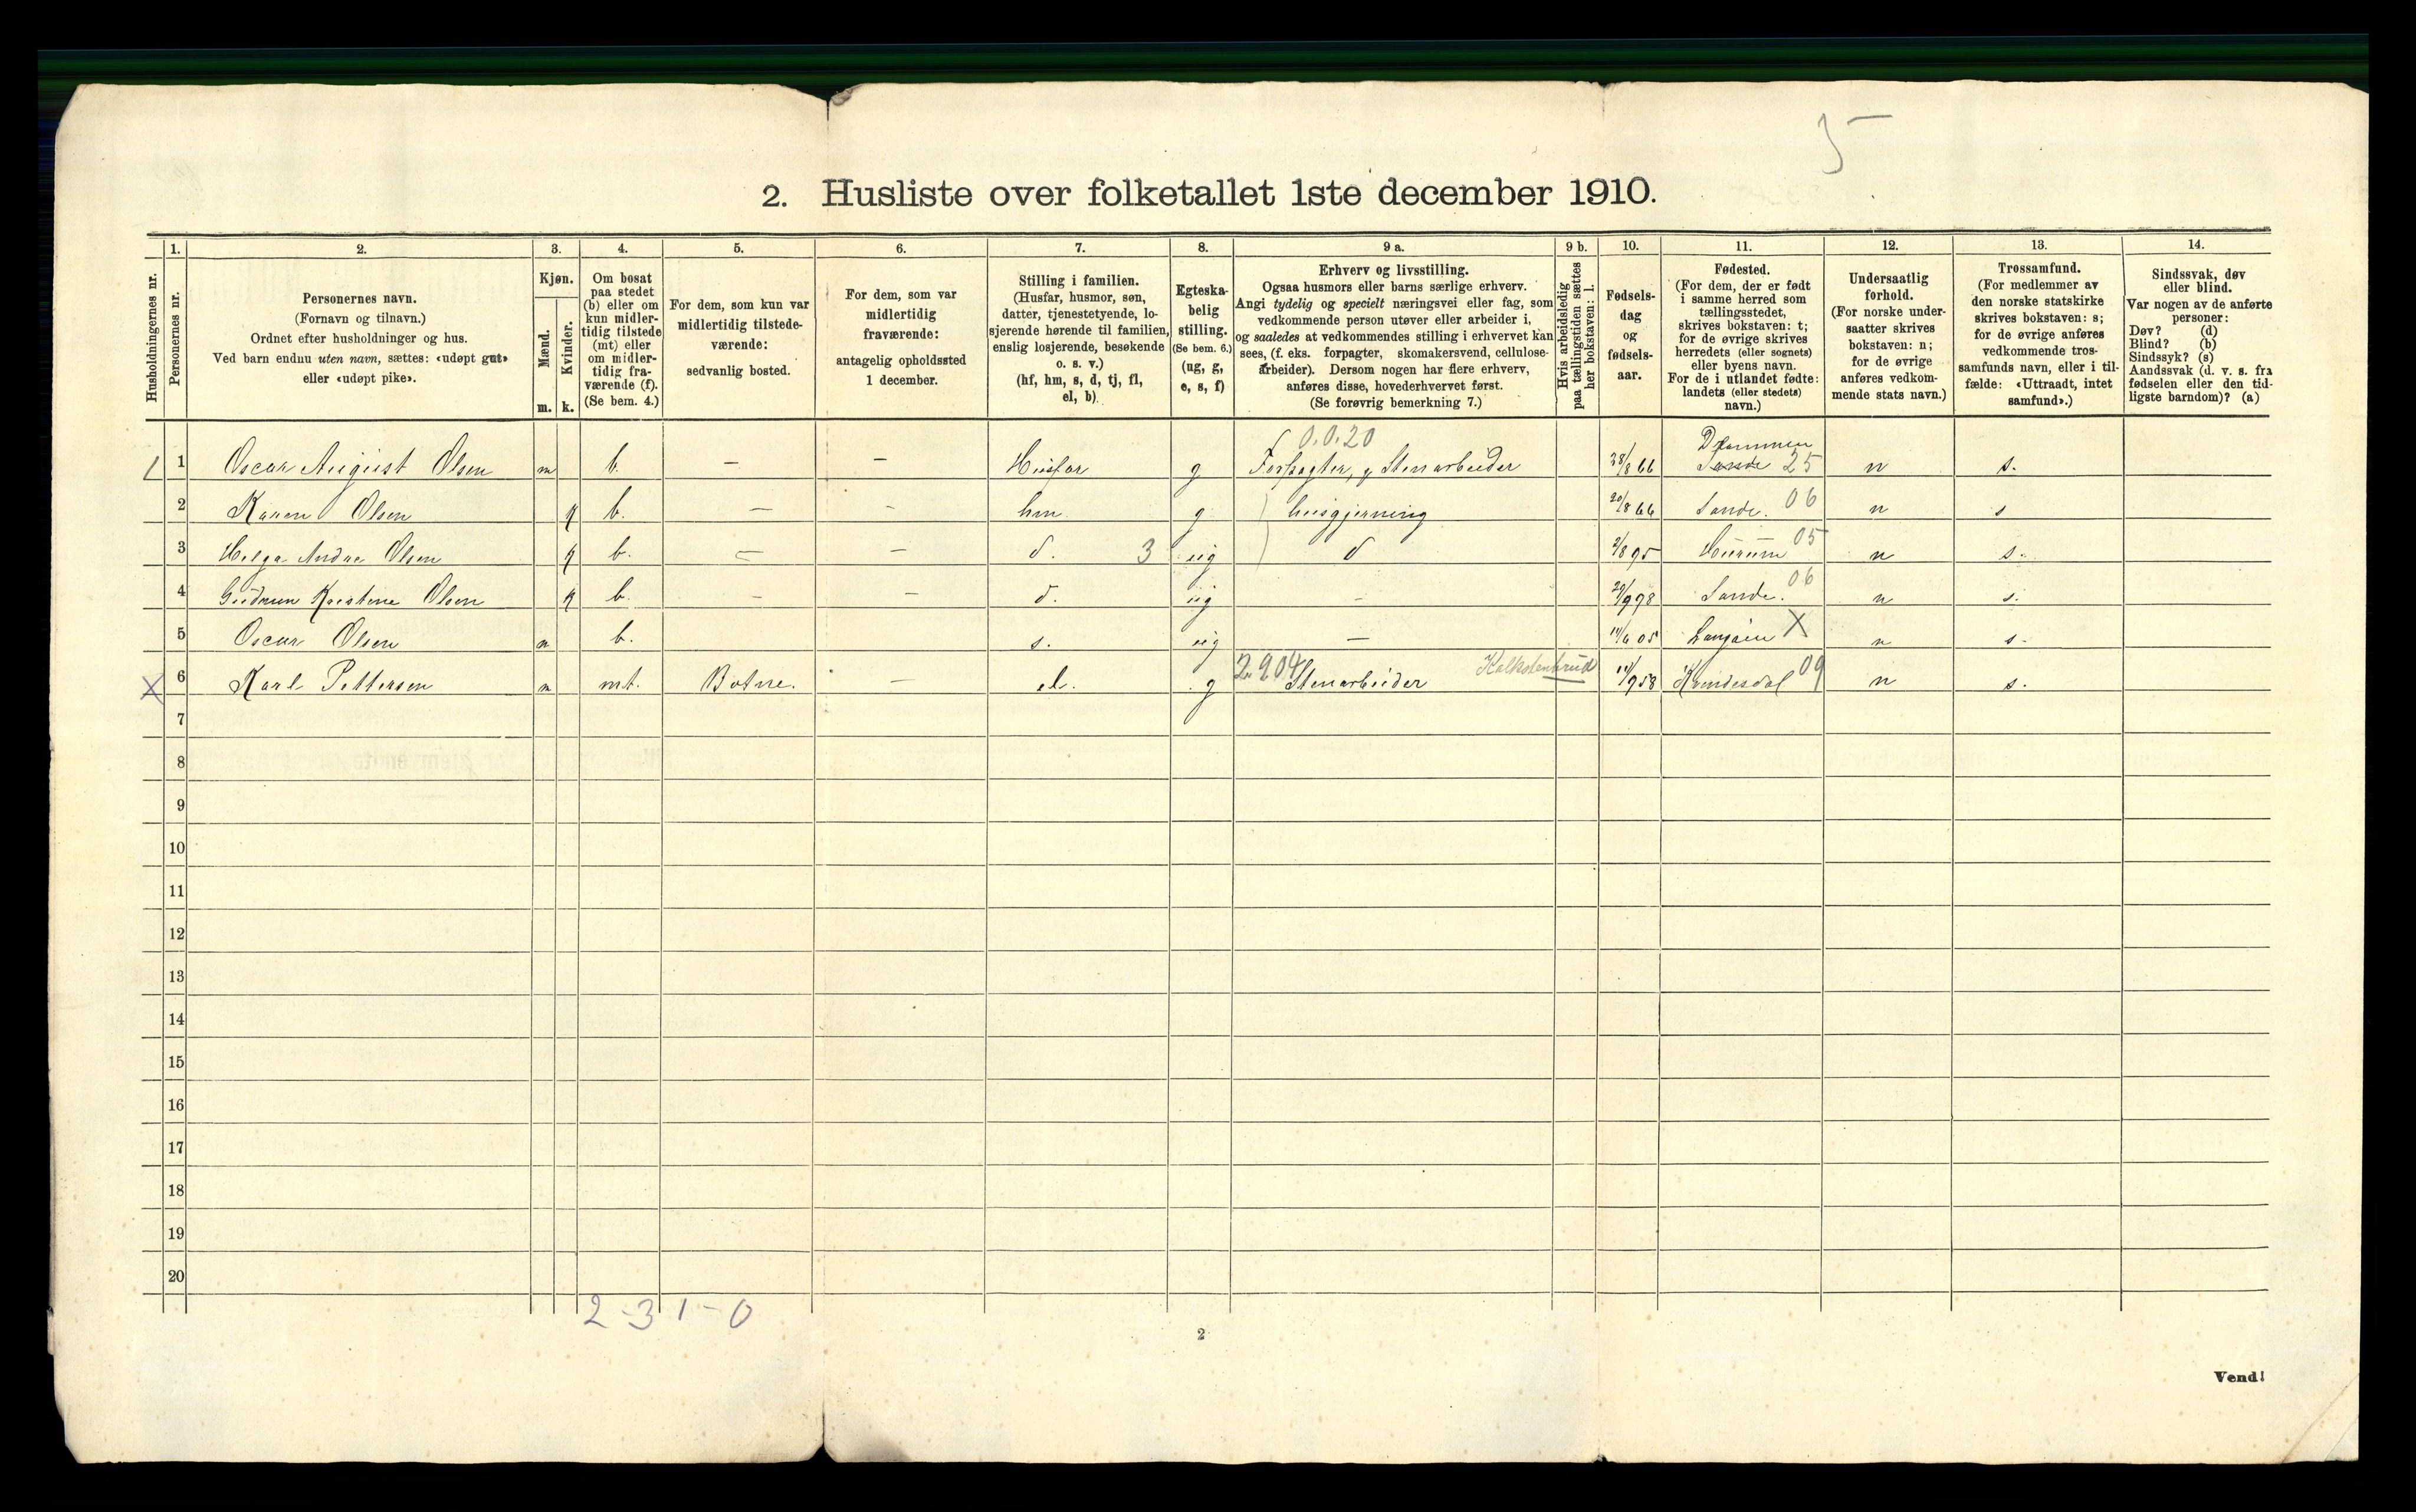 5
2. Husliste over folketallet 1ste december 1910.
Husholdningernes nr.
1. Personernes nr.
2. Personernes navn. (Fornavn og tilnavn.) Ordnet efter husholdninger og hus. Ved barn endnu uten navn, sættes: «udøpt gut» eller «udøpt pike».
3. Kjøn. Mænd. m. Kvinder. k.
4. Om bosat paa stedet (b) eller om kun midlertidig tilstede (mt) eller om midlertidig fraværende (f). (Se bem. 4.)
5. For dem, som kun var midlertidig tilstedeværende: sedvanlig bosted.
6. For dem, som var midlertidig fraværende: antagelig opholdssted 1 december.
7. Stilling i familien. (Husfar, husmor, søn, datter, tjenestetyende, losjerende hørende til familien, enslig losjerende, besøkende o. s. v.) (hf, hm, s, d, tj, fl, el, b)
8. Egteskabelig stilling. (Se bem. 6.) (ug, g, e, s, f)
9 a. Erhverv og livsstilling. Ogsaa husmors eller barns særlige erhverv. Angi tydelig og specielt næringsvei eller fag, som vedkommende person utøver eller arbeider i, og saaledes at vedkommendes stilling i erhvervet kan sees, (f. eks. forpagter, skomakersvend, cellulosearbeider). Dersom nogen har flere erhverv, anføres disse, hovederhvervet først. (Se forøvrig bemerkning 7.)
9 b. Hvis arbeidsledig paa tællingstiden sættes her bokstaven: l.
10. Fødselsdag og fødselsaar.
11. Fødested. (For dem, der er født i samme herred som tællingsstedet, skrives bokstaven: t; for de øvrige skrives herredets (eller sognets) eller byens navn. For de i utlandet fødte: landets (eller stedets) navn.)
12. Undersaatlig forhold. (For norske undersaatter skrives bokstaven: n; for de øvrige anføres vedkommende stats navn.)
13. Trossamfund. (For medlemmer av den norske statskirke skrives bokstaven: s; for de øvrige anføres vedkommende trossamfunds navn, eller i tilfælde: «Uttraadt, intet samfund».)
14. Sindssvak, døv eller blind. Var nogen av de anførte personer: Døv? (d) Blind? (b) Sindssyk? (s) Aandssvak (d. v. s. fra fødselen eller den tidligste barndom)? (a)
0.0.20 Drammen
1 1 Oscar August Olsen m b. — — Husfar g Forpagter, g Stenarbeider 28/8 66 Sande 25 n s.
2 Karen Olsen k b. — - hm g husgjerning 20/8 66 Sande. 06 n s
3 Helga Andrea Olsen k b. — — d. 3 ug d 2/8 95 Hurum 05 n s.
4 Gudrun Kristine Olsen k b. - — d. ug - 29/9 98 Sande. 06 n s.
5 Oscar Olsen m b. s. ug — 14/6 05 X n s.
X 6 Karl Pettersen m mt. Botne. — el. g 2.904 Stenarbeider Kalkstenbrud 11/9 58 09 n s.
7
8
9
10
11
12
13
14
15
16
17
18
19
20
2 - 3 1 - 0
2
Vend!